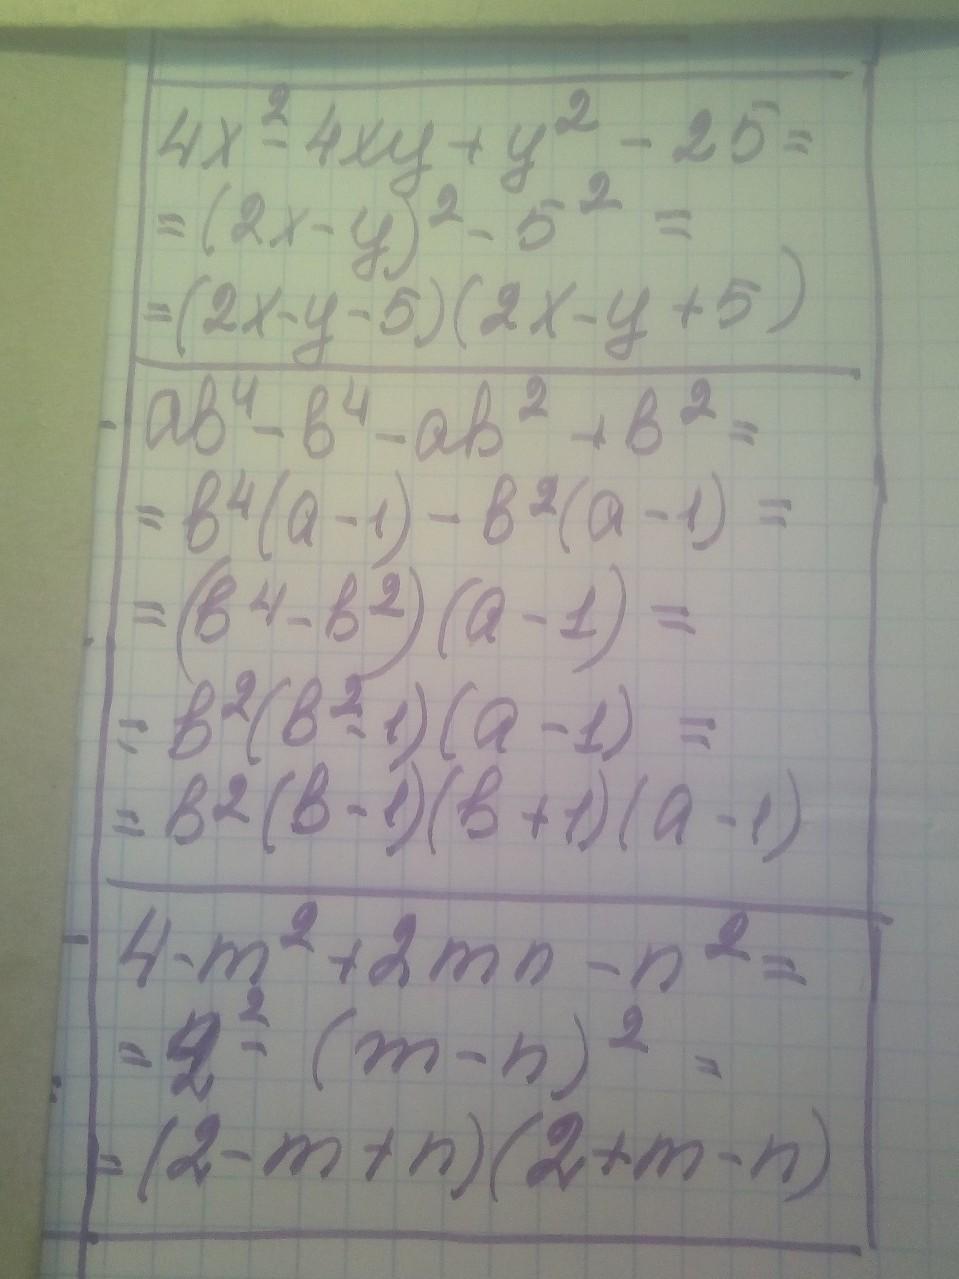 4x² - 4xy + y² - 25 =
= (2x - y)² - 5² =
= (2x - y - 5)(2x - y + 5)
ab⁴ - b⁴ - ab² + b² =
= b⁴(a - 1) - b²(a - 1) =
= (b⁴ - b²)(a - 1) =
= b²(b² - 1)(a - 1) =
= b²(b - 1)(b + 1)(a - 1)
4 - m² + 2mn - n² =
= 2² - (m - n)² =
= (2 - m + n)(2 + m - n)